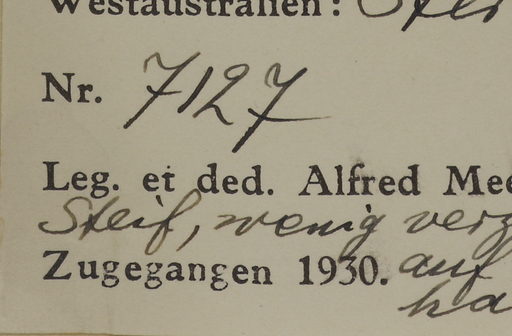 Westaustralien:
Nr. 7127
Leg. et ded. Alfred Mee
Steif, wenig verz
Zugegangen 1930. auf
ha